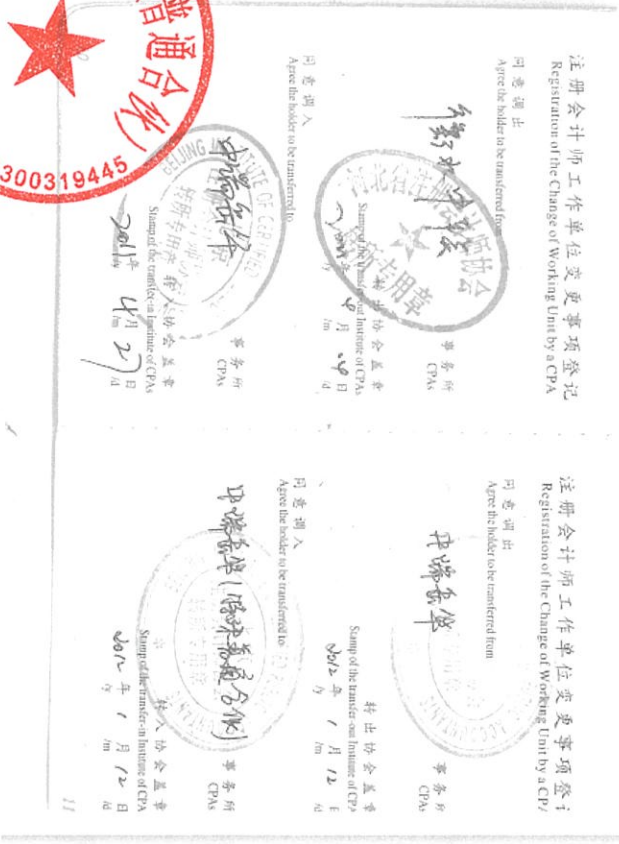 注册会计师工作单位变更事项登记
Registration of the Change of Working Unit by a CPA
同意调出
Agree the holder to be transferred from
事务所
CPAs
河北省注册会计师协会
转所专用章
转出协会盖章
Stamp of the transfer-out Institute of CPAs
年 4月 日
/y /m /d
同意调入
Agree the holder to be transferred to
中瑞岳华
事务所
CPAs
转所专用章
转入协会盖章
Stamp of the transfer-in Institute of CPAs
2011年 4月 27日
/y /m /d
普通合伙)
300319445
注册会计师工作单位变更事项登
Registration of the Change of Working Unit by a CP
同意调出
Agree the holder to be transferred from
中瑞岳华
事务所
CPAs
转出协会盖章
Stamp of the transfer-out Institute of CPA
2012年 1月 12日
/y /m /d
同意调入
Agree the holder to be transferred to
中瑞岳华(特殊普通合伙)
事务所
CPAs
转所专用章
转入协会盖章
Stamp of the transfer-in Institute of CPA
2012年 1月 12日
/y /m /d
11